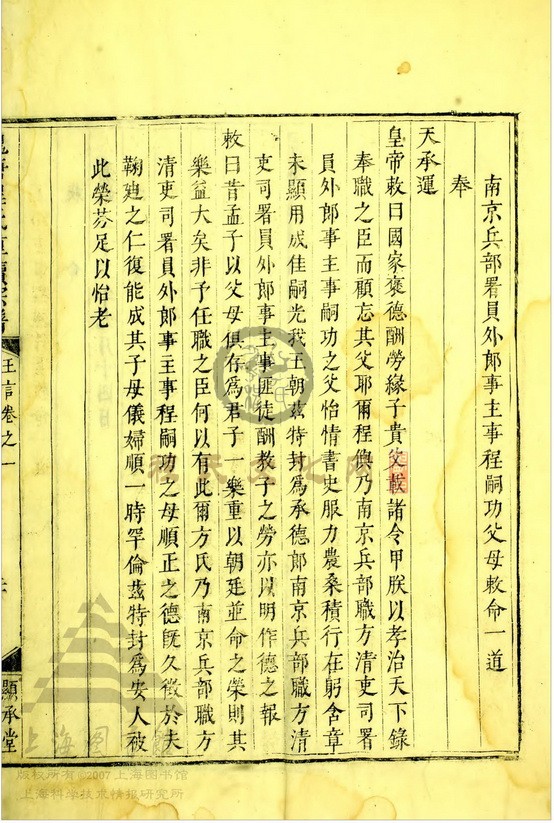 南京兵部署員外郎事主事程嗣功父母敕命一道
奉
天承運
皇帝敕曰國家褒德酬勞緣子貴父載諸令甲朕以孝治天下錄
奉職之臣而顧忘其父耶爾程乃南京兵部職方清吏司署
員外郎事主事嗣功之父怡情書史服力農桑積行在躬含章
未顯用成佳嗣光我王朝茲特封爲承德郎南京兵部職方清
吏司署員外郎事主事匪徒酬教子之勞亦以明作德之報
敕曰昔孟子以父母俱存爲君子一樂重以朝廷並命之榮則其
樂益大矣非予任職之臣何以有此爾方氏乃南京兵部職方
清吏司署員外郎事主事程嗣功之母順正之德旣久徵於夫
鞠廸之仁復能成其子母儀婦順一時罕倫茲特封爲安人被
此榮芬足以怡老
王言卷之一
顯承堂
上海圖
版权所有 ©2007 上海图书馆
上海科学技术情报研究所